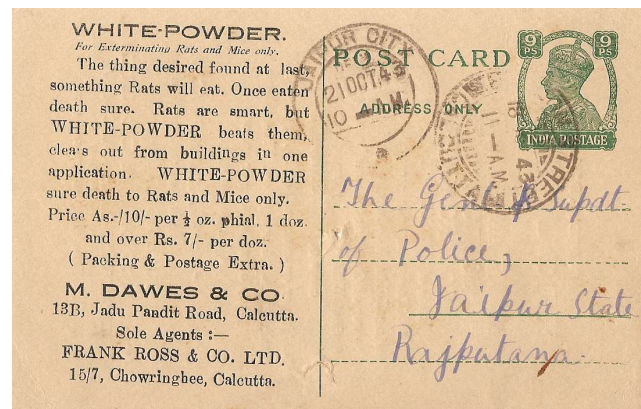 WHITE-POWDER.
For Exterminating Rats and Mice only.
The thing desired found at last,
something Rats will eat. Once eaten
death sure. Rats are smart, but
WHITE-POWDER beats them,
clears out from buildings in one
application. WHITE-POWDER
sure death to Rats and Mice only.
Price As.-/10/- per ½ oz. phial, 1 doz.
and over Rs. 7/- per doz.
( Packing & Postage Extra. )
M. DAWES & CO.
13B, Jadu Pandit Road, Calcutta.
Sole Agents :—
FRANK ROSS & CO. LTD.
15/7, Chowringhee, Calcutta.
POST CARD
ADDRESS ONLY
9 PS
9 PS
INDIA POSTAGE
JAIPUR CITY
21 OCT 43
10 AM
18
11-AM
43
The Genl Supdt.
of Police,
Jaipur State
Rajputana.